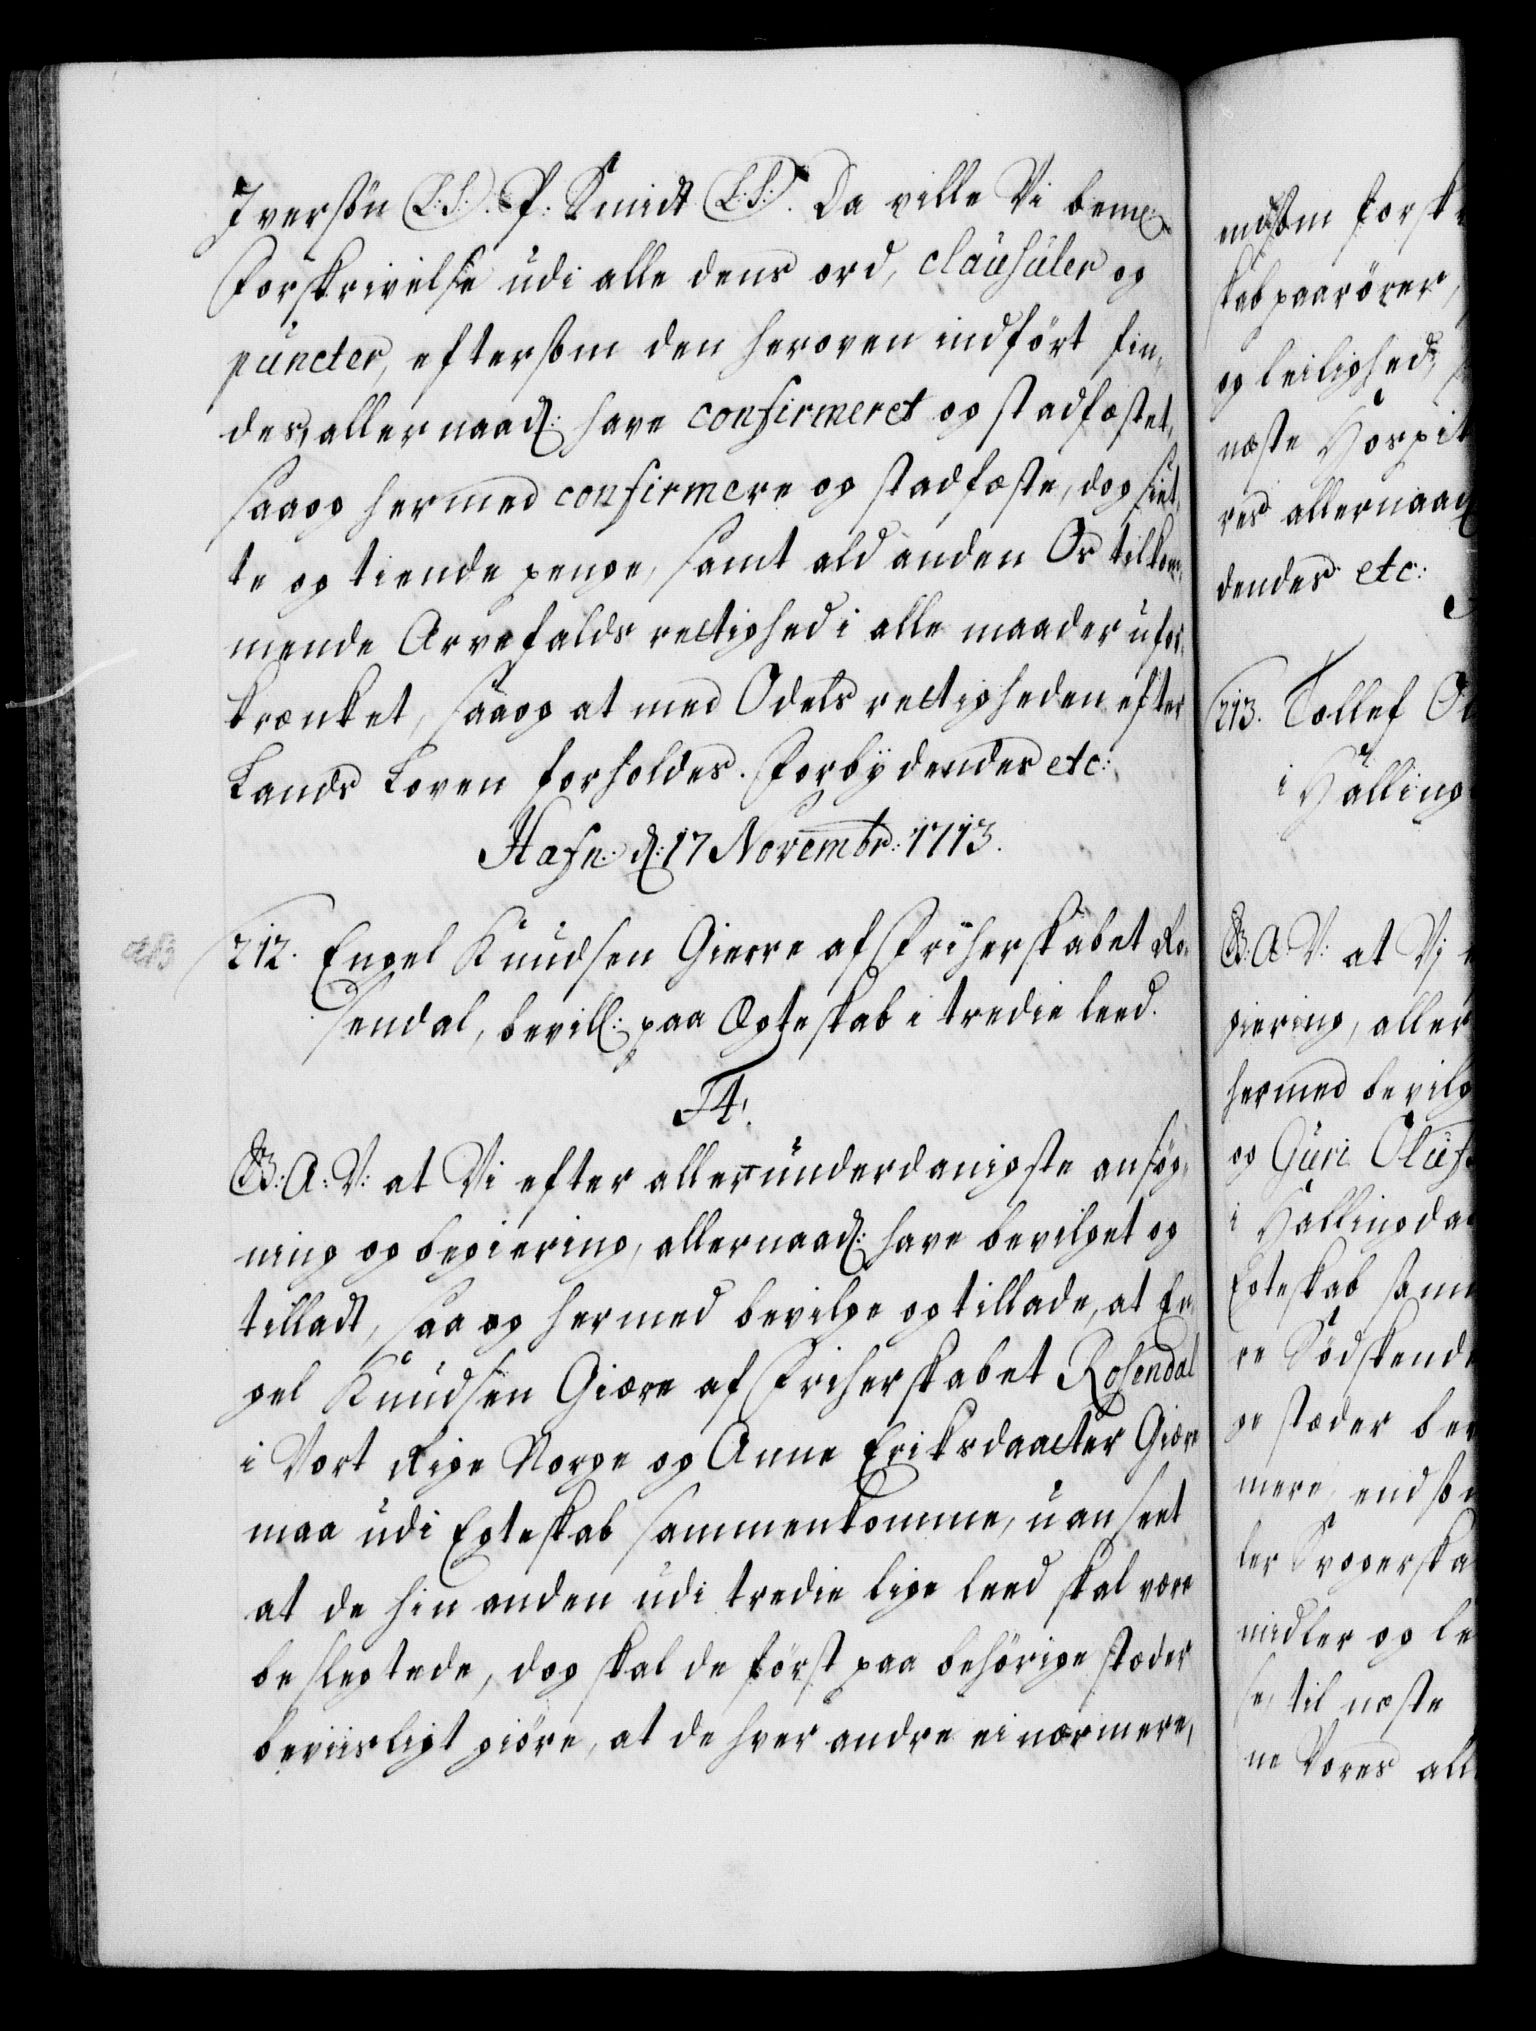 Iversön (L:S:). P: Smidt (L:S:). Da ville Vi bem:
Forskrivelse udi alle dens ord, clausuler og
puncter, eftersom den heroven indfört fin,
des, allernaad: have confirmeret og stadfæstet,
saaog hermed confirmere og stadfæste, dog siet,
te og tiende penge, samt ald anden Os tilkom,
mende Arvefalds rettighed i alle maader ufor,
krænket, saaog at med Odels rettigheden efter
Lands Loven forholdes. Forbydendes etc:
Hafn: d: 17 Novembr: 1713.
212. Engel Knudsen Gierre af Friherskabet Ro,
sendal, bevill: paa Egteskab i tredie leed.
F4.
G: A: V: at Vi efter allerunderdanigste ansög,
ning og begiering, allernaad: have bevilget og
tilladt, saa og hermed bevilge og tillade, at En,
gel Knudsen Giære af Friherskabet Rosendal
i Vort Rige Norge og Anne Eriksdaatter Giære
maa udi Egteskab sammenkomme, uanseet
at de hin anden udi tredie lige leed skal være
beslegtede, dog skal de först paa behörige stæder
beviisligt giöre, at de hver andre ei nærmere,
endsom forsk
skab paarörer,
og leilighed,
næste Hospit
res allernaad
dendes etc:
213. Tollef
i Halling
G: A: V: at Vi
giering, aller
hermed bevilg
og Guri Oluf
i Hallingda
Egteskab samm
re Södskende
ge stæder bev
mere, endso
ler Svogerska
midler og le
se, til næste
ne Vores all